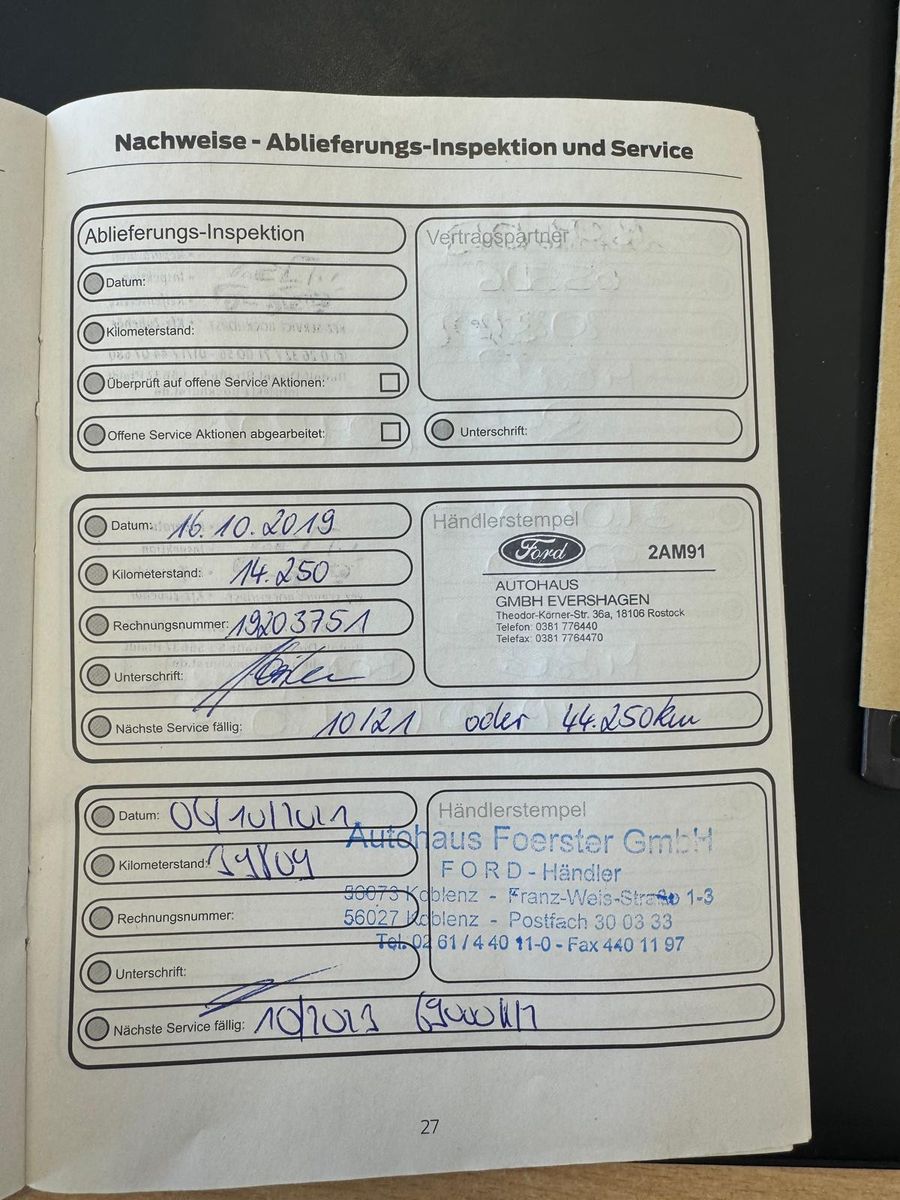 Nachweise - Ablieferungs-Inspektion und Service
Ablieferungs-Inspektion
Datum:
Kilometerstand:
Überprüft auf offene Service Aktionen:
Offene Service Aktionen abgearbeitet:
Vertragspartner
Unterschrift:
Datum: 16.10.2019
Kilometerstand: 14.250
Rechnungsnummer: 19203751
Unterschrift:
Händlerstempel
Ford 2AM91
AUTOHAUS
GMBH EVERSHAGEN
Theodor-Körner-Str. 36a, 18106 Rostock
Telefon: 0381 7764440
Telefax: 0381 7764470
Nächste Service fällig: 10/21 oder 44.250km
Datum: 06/10/2021
Kilometerstand: 39809
Rechnungsnummer:
Unterschrift:
Händlerstempel
Autohaus Foerster GmbH
FORD-Händler
56073 Koblenz - Franz-Weis-Straße 1-3
56027 Koblenz - Postfach 30 03 33
Tel. 02 61 / 4 40 11-0 - Fax 440 11 97
Nächste Service fällig: 10/2023 69000
27